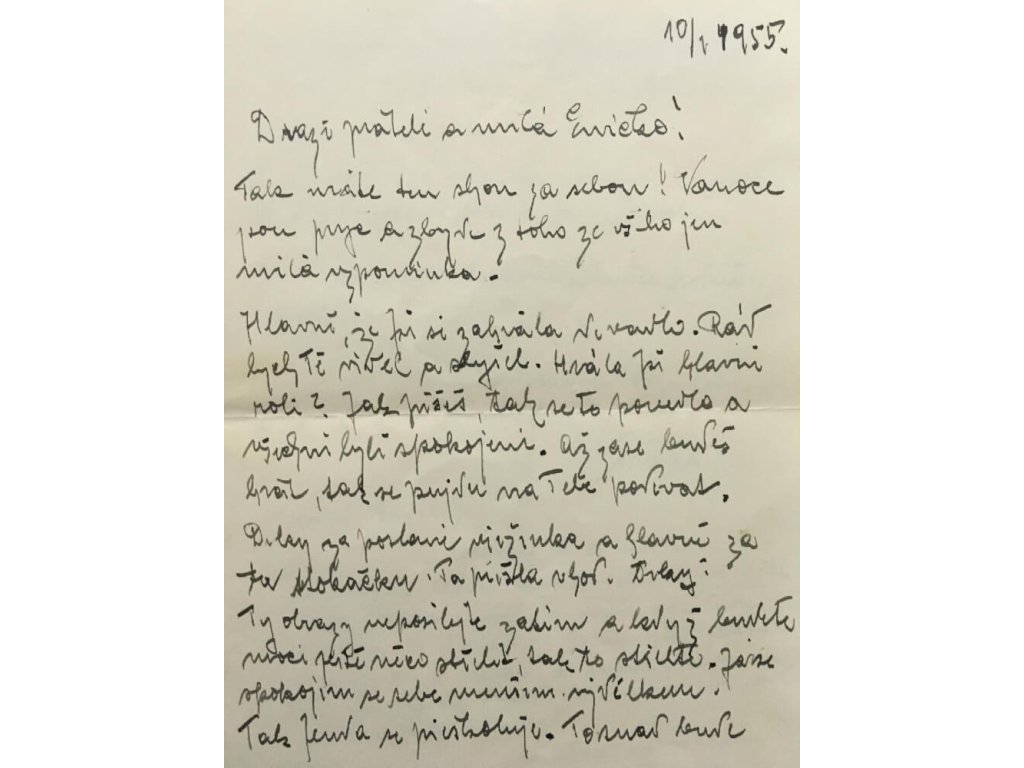 10/1 1955.
Drazí přátelé a milá Evičko!
Tak máte ten shon za sebou! Vánoce
jsou pryč a zbyde z toho ze všeho jen
milá vzpomínka.
Hlavní, že jsi si zahrála divadlo. Rád
bych Tě viděl a slyšel. Hrála jsi hlavní
roli? Jak píšeš, tak se to povedlo a
všichni byli spokojeni. Až zase budeš
hrát, tak se pujdu na Tebe podívat.
Díky za poslaní a hlavně za
tu stokačku. Ta přišla vhod. Díky!
Ty obrazy neposílejte zatím a když budete
moci ještě něco, tak to. Já se
spokojím se sebe menším výdělkem.
Tak Jenda se přeškoluje. To snad bude